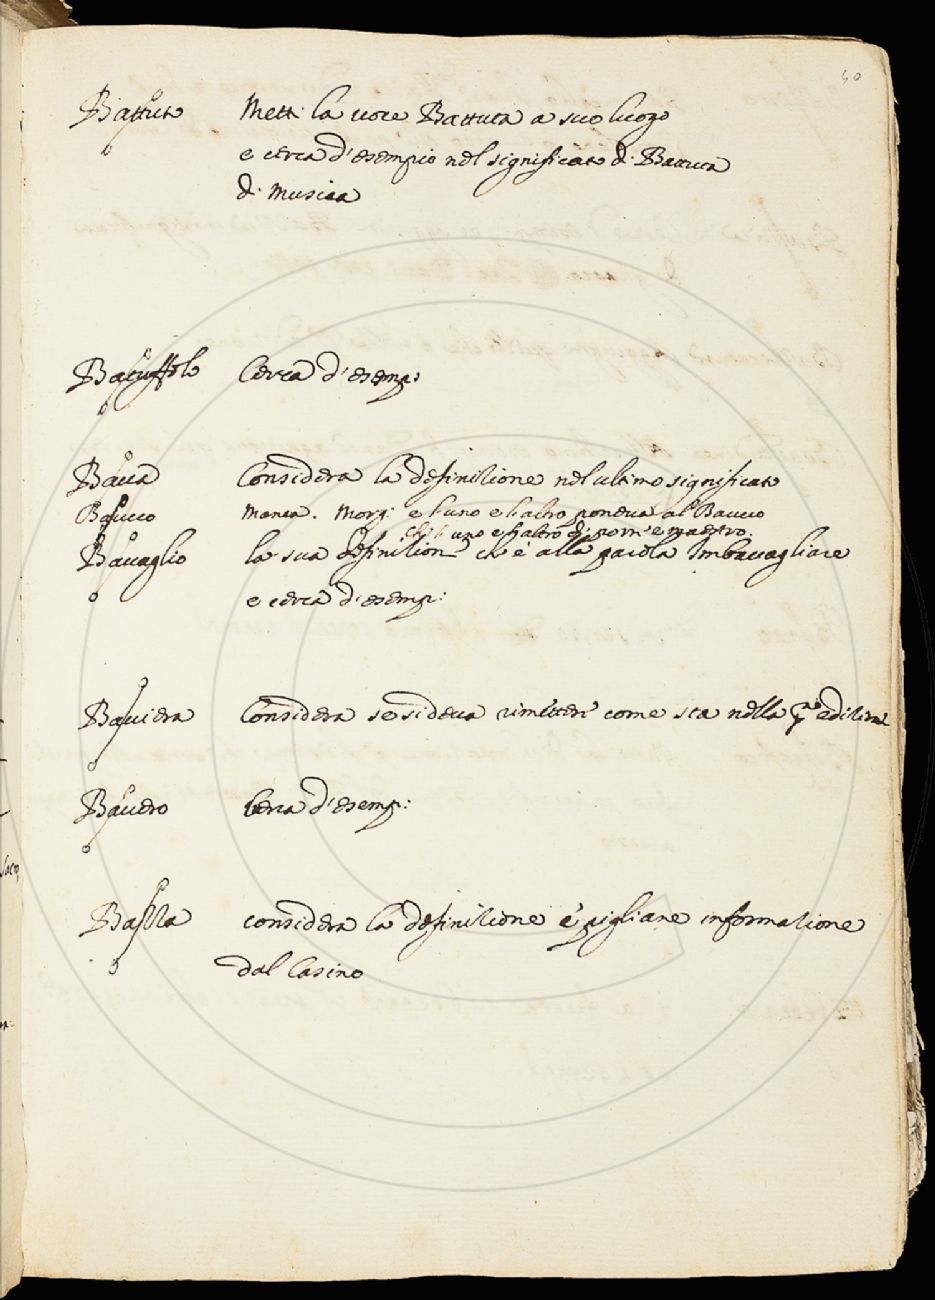 50
Battuto Metti la voce Battuta a suo luogo
e cerca d'esempio nel significato di Battuta
di Musica
Batuffolo Cerca d'esemp:
Bava Considera la definitione nel ultimo significato
Bavero Manca. Morg: e l'uno e l'altro poneva al Bavero
che l'uno e l'altro di
Bavaglio la sua definitione che è alla parola Imbavagliare
e cerca d'esemp:
Baviera Considera se si deva rimettere come sta nella p.ª editione
Bavero Cerca d'esemp:
considera la definitione e pigliane informatione
dal Casino